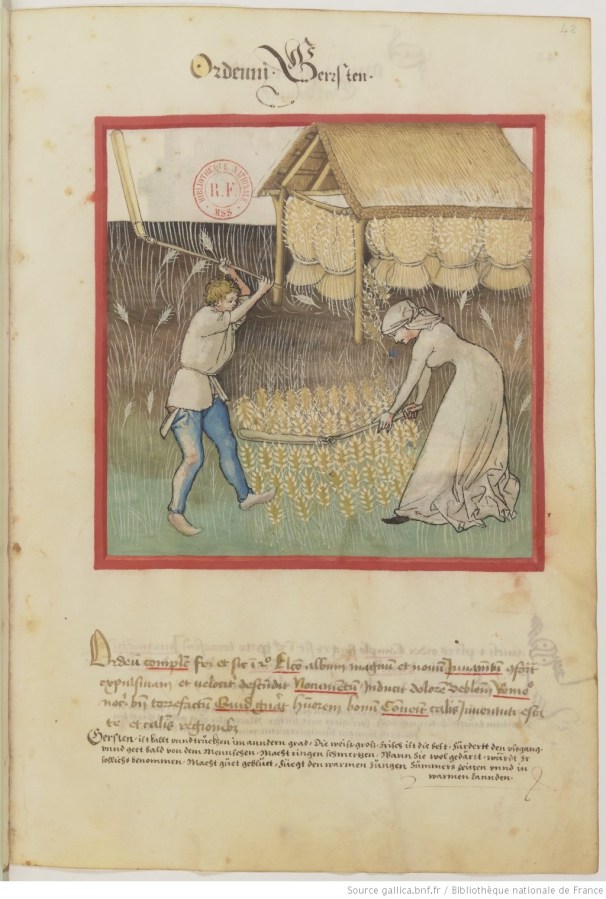 42
Ordeum · Gerrsten ·
BIBLIOTHÈQUE NATIONALE
R.F
MSS
Ordeū complō frī et sic ī 2º Elcō album magnum et novum Juvamtū ɔfert
expulsivam et velocit descendit Nocumentū inducit dolorē debilem Remo
noc bn̄ torrefactū Quid gnat humorem bonum Convēit calis Juventuti esta
te et calis regionibz
Gersten · ist kallt vnnd trückhen im anndern grad · Die weiss gross frisch ist die best · fürdertt den ausgang
vnnd geet bald von dem Mennschen · Macht ringen schmertzen · Wann Sie wol gedärtt · würdt Jr
sollichs benommen · Macht guet geblüet · fuegt den warmen Jungen Sümmers zeitten vnnd in
warmen lannden ·
Source gallica.bnf.fr / Bibliothèque nationale de France